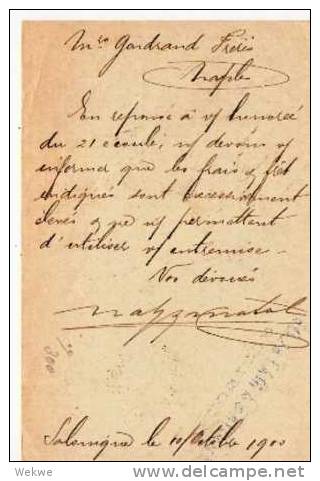 Mrs Gondrand Frères
Naples
En reponse à v/ honorée
du 21 ecoulé, n/ devons v/
informer que les frais & frêt
indiqués sont excessivement
elevés & que n/ permettent
d'utiliser v/ entremise -
Vos dévoués
300
Salonique le 10/Octobre 1900
Wekwe
www.delcampe.net